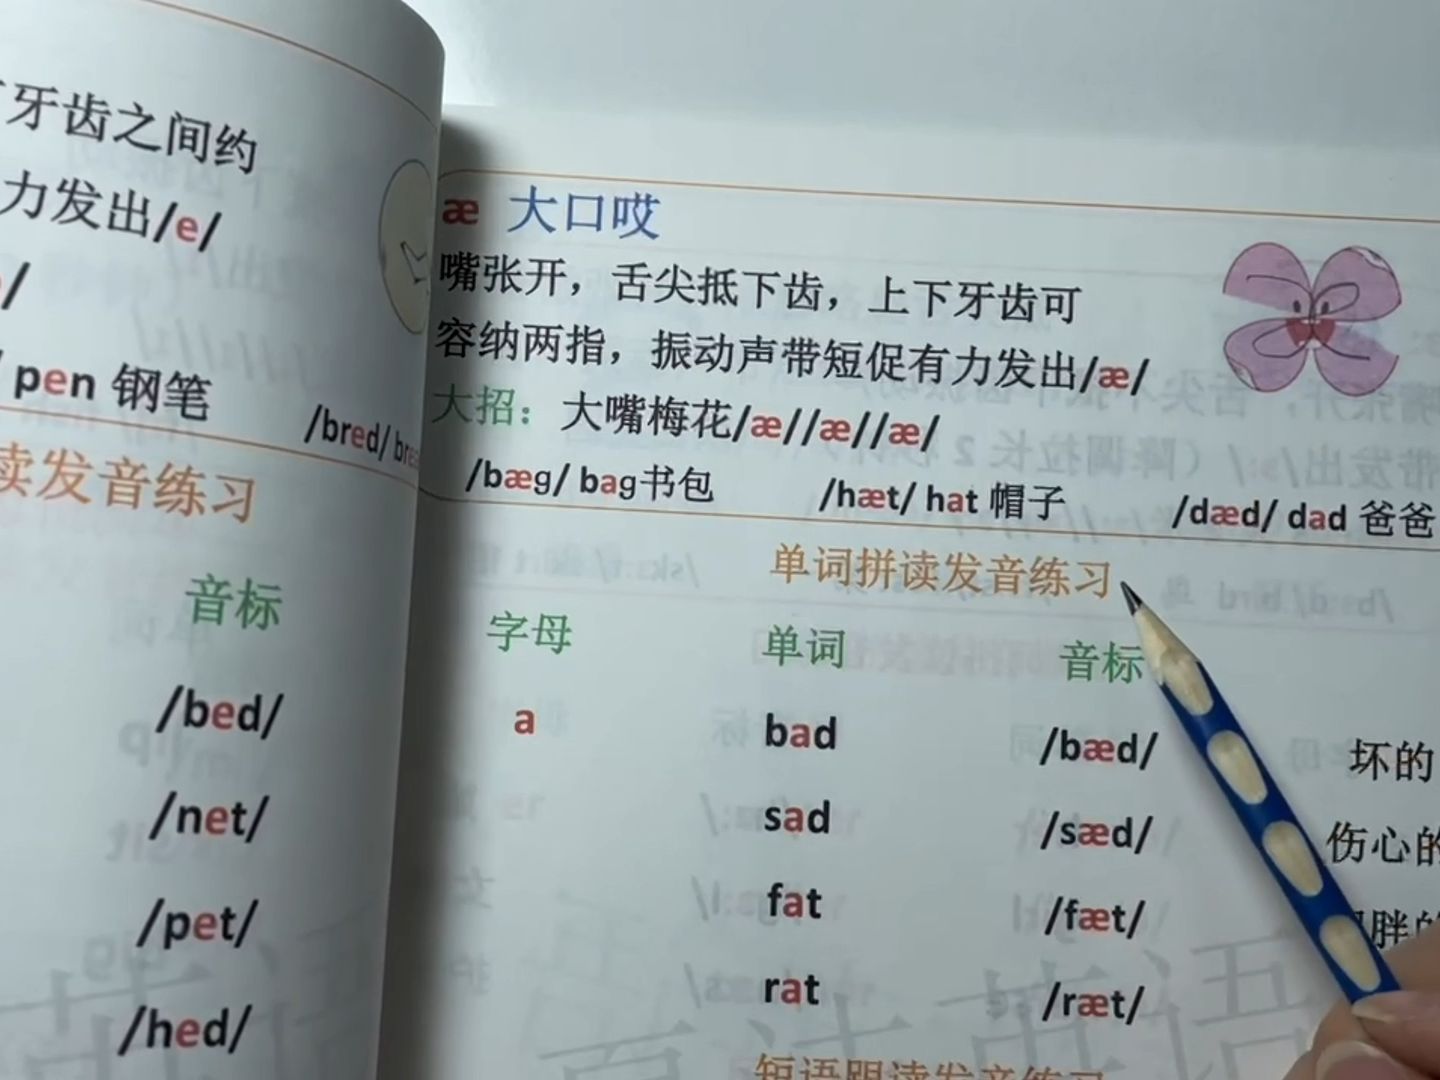 牙齿之间约
力发出/e/
pen 钢笔
/bred/
读发音练习
音标
/bed/
/net/
/pet/
/hed/
æ 大口哎
嘴张开，舌尖抵下齿，上下牙齿可
容纳两指，振动声带短促有力发出/æ/
大招：大嘴梅花/æ//æ//æ/
/bæg/ bag书包 /hæt/ hat 帽子 /dæd/ dad 爸爸
单词拼读发音练习
字母 单词 音标
a bad /bæd/ 坏的
sad /sæd/ 伤心的
fat /fæt/ 胖的
rat /ræt/
短语跟读发音练习